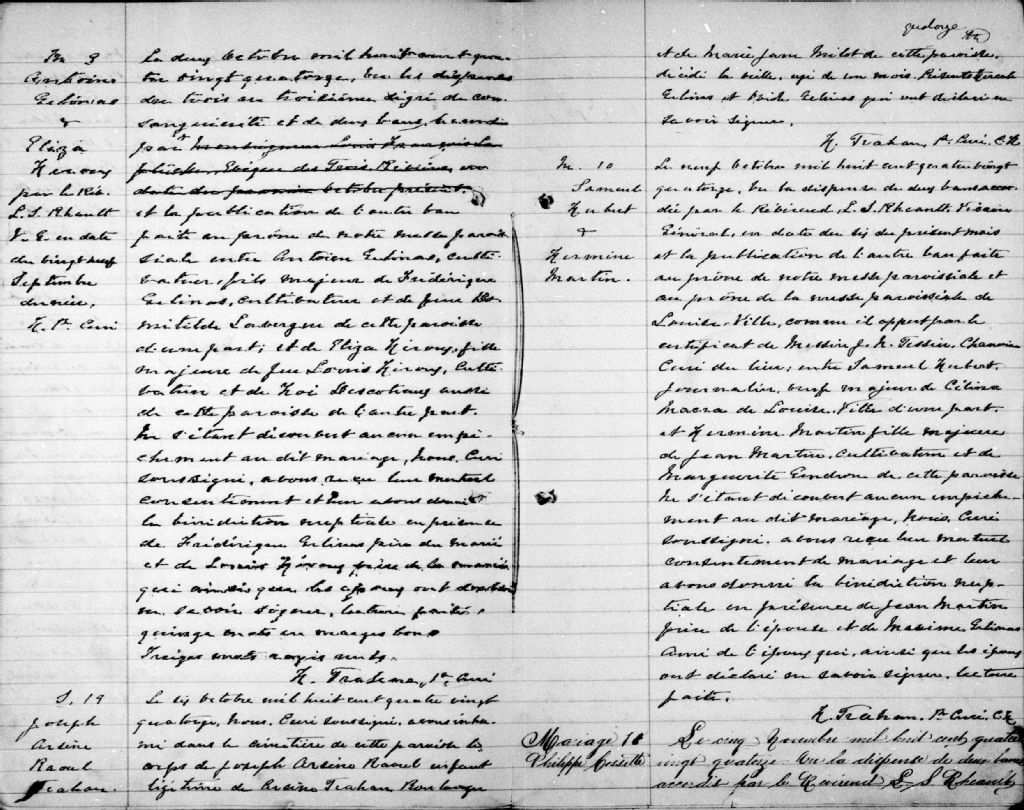 M 9
Antoine
Gelinas
&
Eliza
Heroux
par le Rév.
L. S. Rheault
V. G. en date
du vingt neuf
Septembre
dernier.
H. Ptre Curé
Le deux Octobre mil huit cent qua-
tre vingt quatorze, vu les dispenses
du trois au troisième degré de con-
sanguinité et de deux bans, accordées
par Monseigneur Louis François La
flèche, Evêque des Trois Rivières, en
date du premier Octobre présent,
et la publication de l'autre ban
faite au prône de notre messe parois
siale entre Antoine Gelinas, culti-
vateur, fils majeur de Frédérique
Gelinas, cultivateur et de feue Do-
mitilde Lavergne de cette paroisse
d'une part; et de Eliza Heroux, fille
majeure de feu Louis Heroux, culti-
vateur et de Descoteaux aussi
de cette paroisse de l'autre part.
Ne s'étant découvert aucun empê-
chement au dit mariage, Nous, Curé
soussigné, avons reçu leur mutuel
consentement et leur avons donné
la bénédiction nuptiale en présence
de Frédérique Gelinas père du marié
et de Heroux de la mariée
qui ainsi que les époux ont déclaré
ne savoir signer, lecture faite.
quinze mots en marges bons
Treizes mots rayés nuls.
H. Trahan, Ptre Curé
S. 19
Joseph
Arsène
Raoul
Trahan.
Le six Octobre mil huit cent quatre vingt
quatorze, Nous, Curé soussigné, avons inhu-
mé dans le cimetière de cette paroisse le
corps de Joseph Arsène Raoul enfant
légitime de Arsène Trahan Boulanger
quatorze
et de Marie Jane Milot de cette paroisse,
décédé la veille, agé de un mois. Présents
Gelinas et Gelinas qui ont déclaré ne
savoir signer.
H. Trahan, Ptre Curé, C. R.
M. 10
Samuel
Hubert
&
Hermine
Martin.
Le neuf Octobre mil huit cent quatre vingt
quatorze, vu la dispense de deux bans accor
dée par le Révérend, L. S. Rheault, Vicaire
Général, en date du six du présent mois
et la publication de l'autre ban faite
au prône de notre messe paroissiale et
au prône de la messe paroissiale de
Louise-Ville, comme il appert par le
certificat de Messire J. N. Tessier, Chanoine
Curé du lieu; entre Samuel Hubert.
Journalier, veuf majeur de Célina
de Louise-Ville d'une part.
et Hermine Martin fille majeure
de Jean Martin, Cultivateur et de
Marguerite Gendron de cette paroisse
Ne s'étant découvert aucun empêche-
ment au dit mariage, Nous, Curé
soussigné, avons reçu leur mutuel
consentement de mariage et leur
avons donné la bénédiction nup-
tiale en présence de Jean Martin
père de l'épouse et de Maxime Gelinas
Ami de l'époux qui, ainsi que les époux
ont déclaré ne savoir signer, lecture
faite.
H. Trahan. Ptre Curé. C. R.
Mariage 11
Philippe
Le cinq Novembre mil huit cent quatre
vingt quatorze Vu la dispense de deux bans
accordé par le Révérend L. S. Rheault